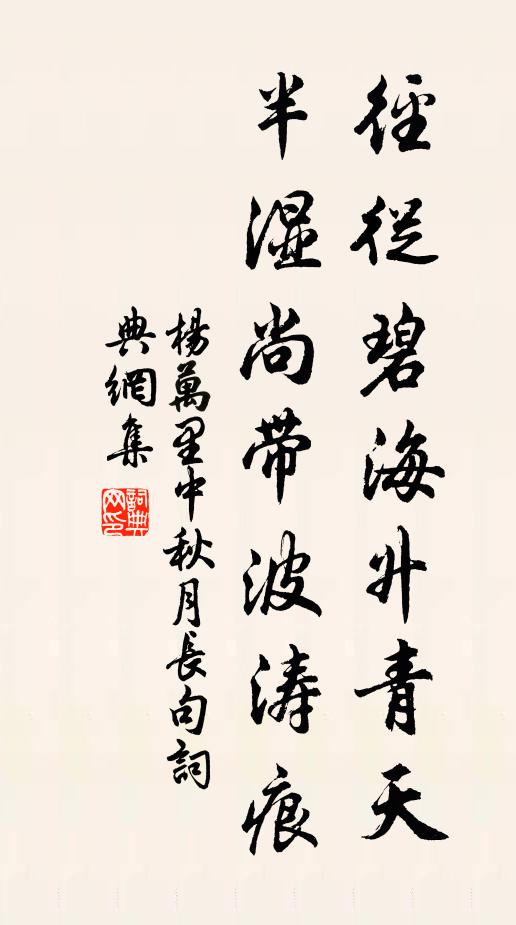 徑從碧海升青天
半濕尚帶波濤痕
楊萬里中秋月長句詞
典網集
詞典
网印